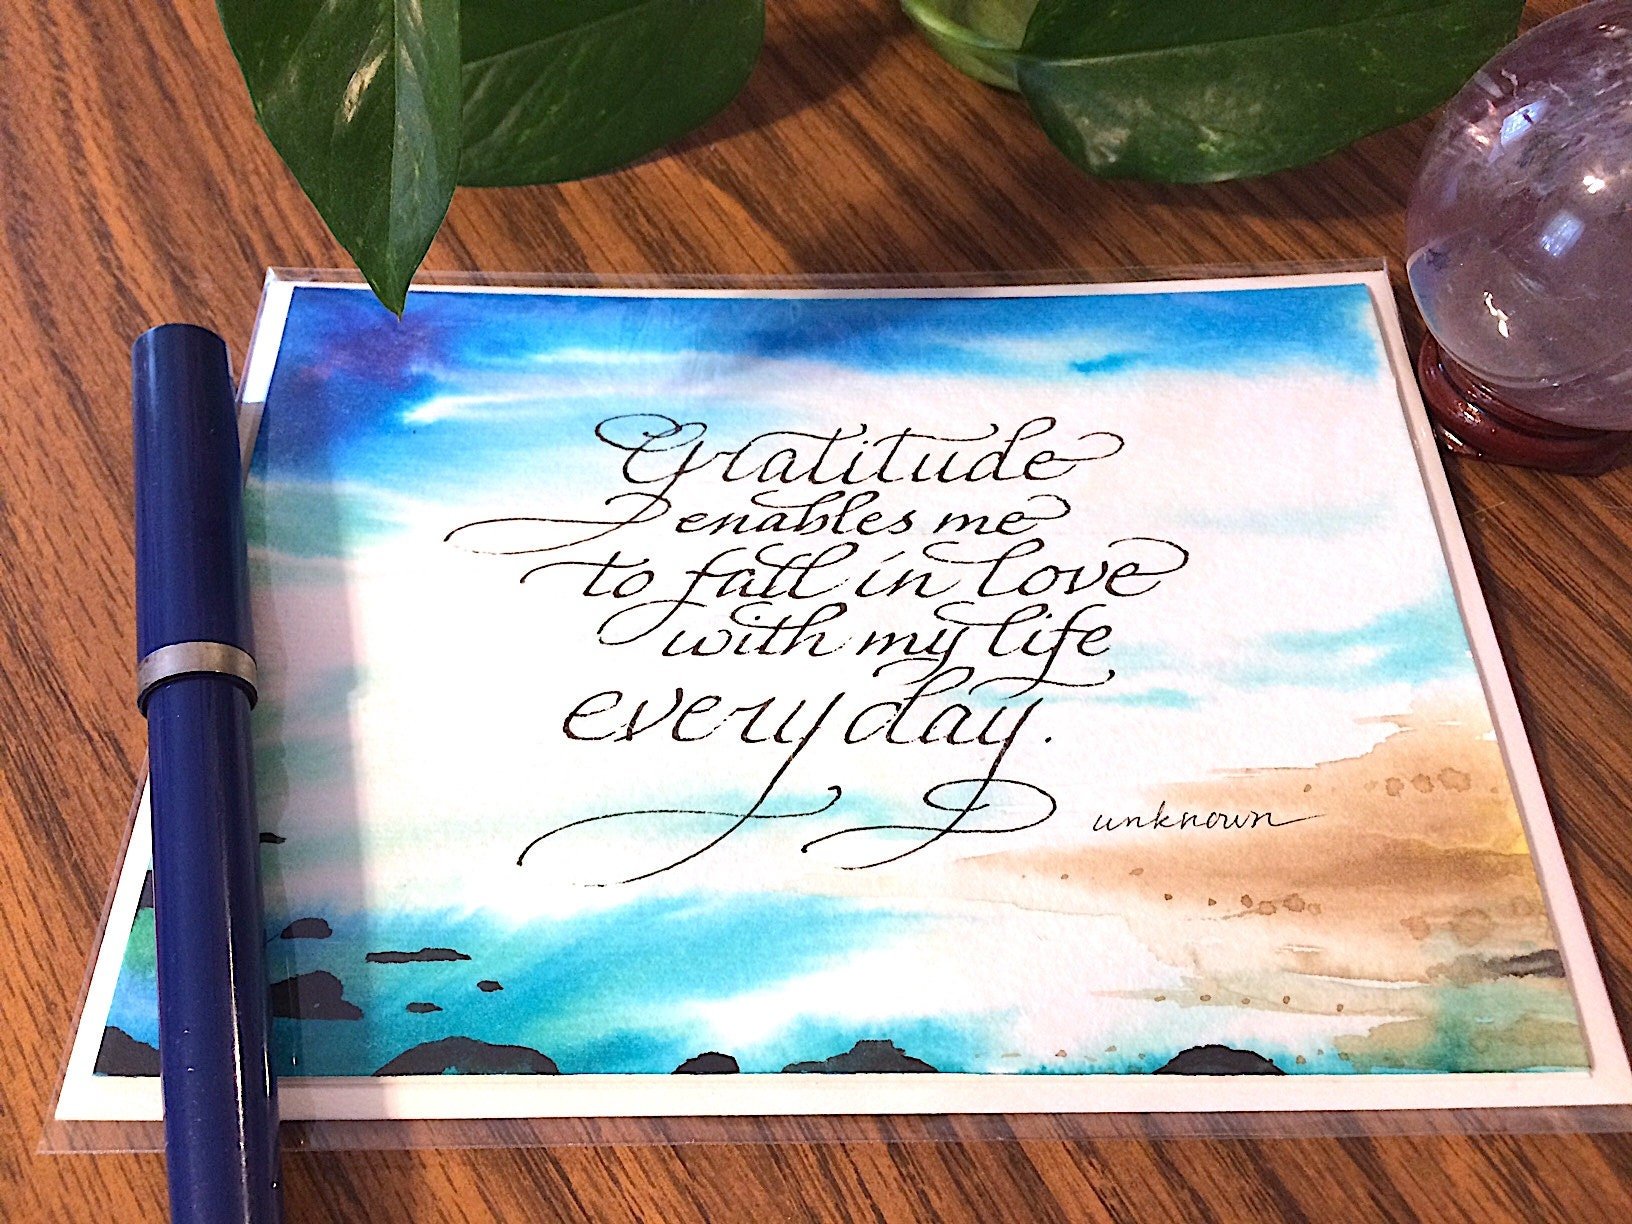 Gratitude
enables me
to fall in love
with my life
every day.
unknown